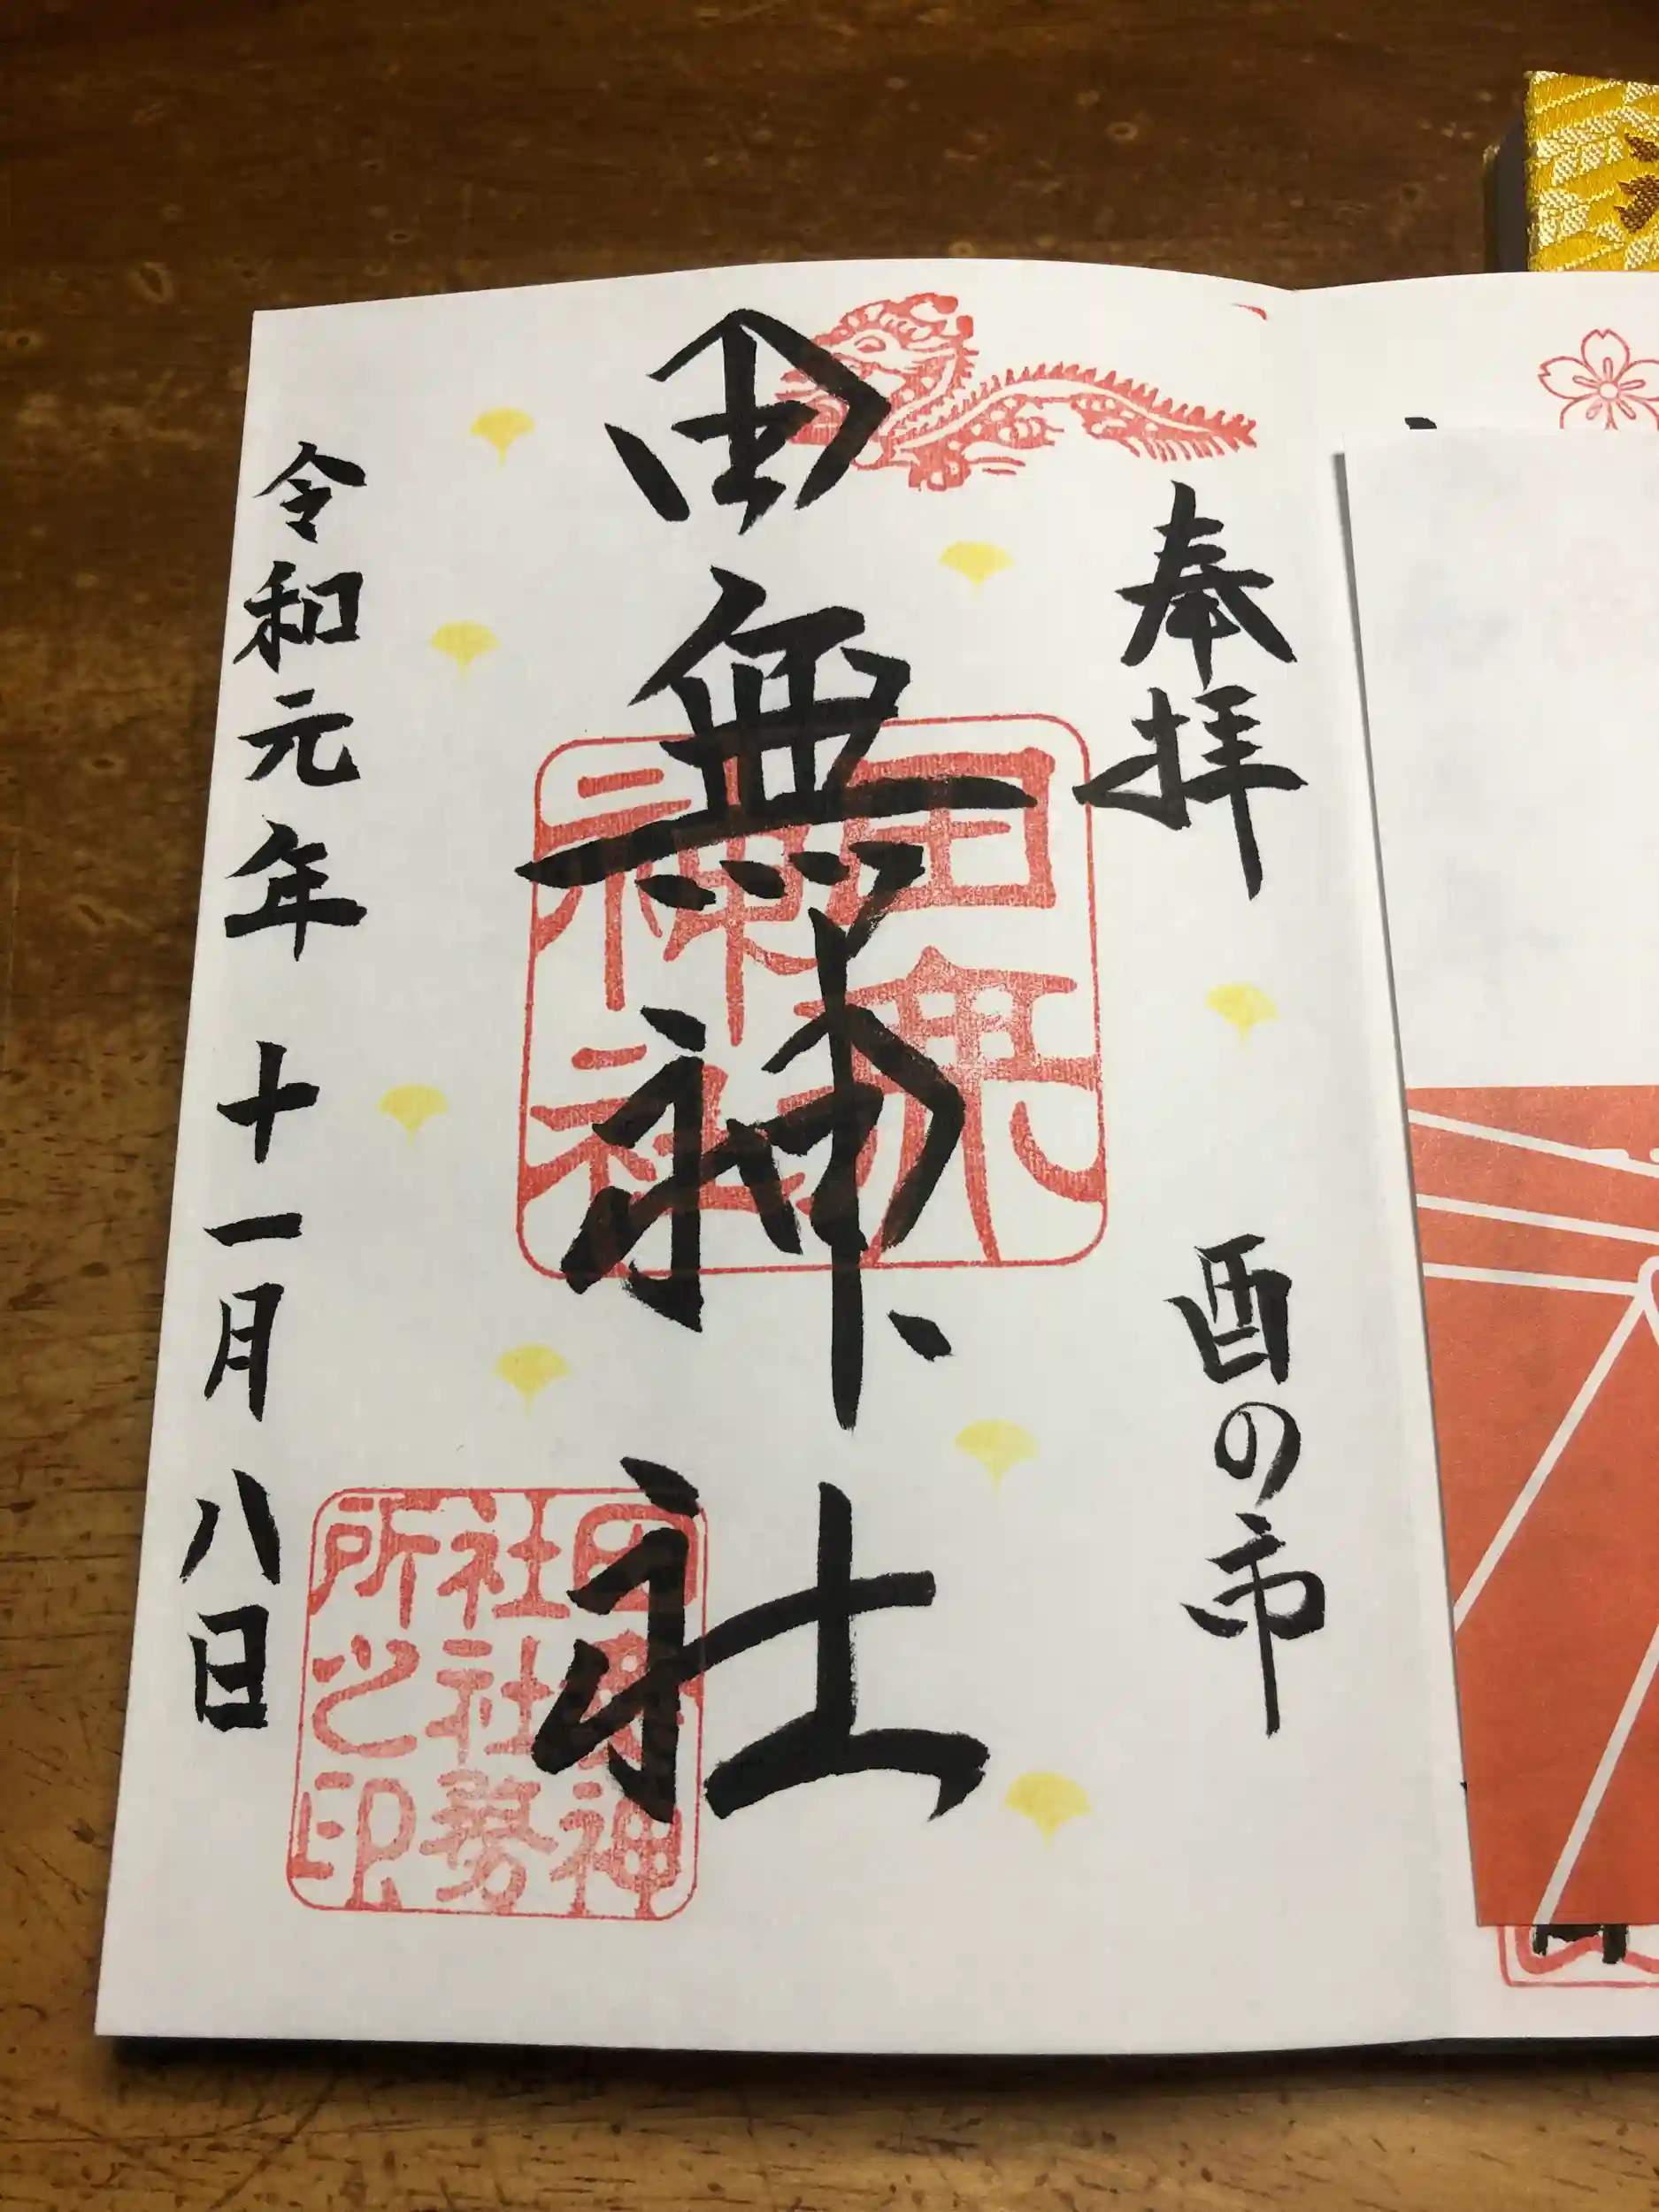 奉拝 酉の市
田無神社
令和元年 十一月 八日
田無神社
田無神社社務所之印